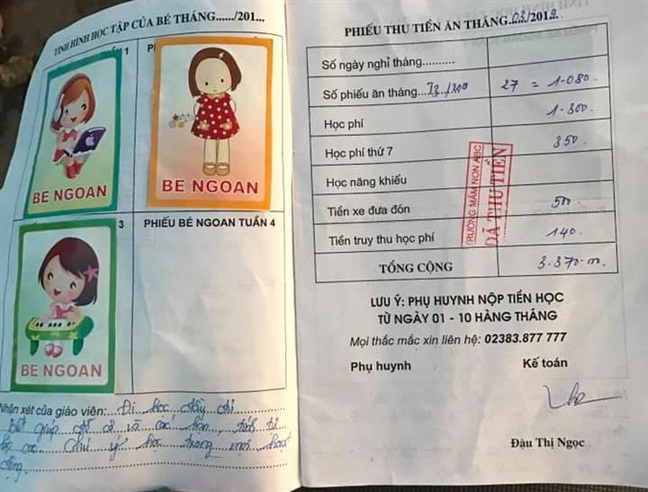 TÌNH HÌNH HỌC TẬP CỦA BÉ THÁNG....../201...
1
BÉ NGOAN
BÉ NGOAN
3
PHIẾU BÉ NGOAN TUẦN 4
BÉ NGOAN
Nhận xét của giáo viên: Đi học đầy đủ
giúp đỡ cô và các bạn, tính
Chú ý học trong mọi hoạt
động
PHIẾU THU TIỀN ĂN THÁNG 03/2019.
Số ngày nghỉ tháng..........
Số phiếu ăn tháng 27 = 1.080.
Học phí 1.300.
Học phí thứ 7 350.
Học năng khiếu
Tiền xe đưa đón 500
Tiền truy thu học phí 140.
TỔNG CỘNG 3.370.
TRƯỜNG MẦM NON ABC
ĐÃ THU TIỀN
LƯU Ý: PHỤ HUYNH NỘP TIỀN HỌC
TỪ NGÀY 01 - 10 HÀNG THÁNG
Mọi thắc mắc xin liên hệ: 02383.877 777
Phụ huynh Kế toán
Đậu Thị Ngọc